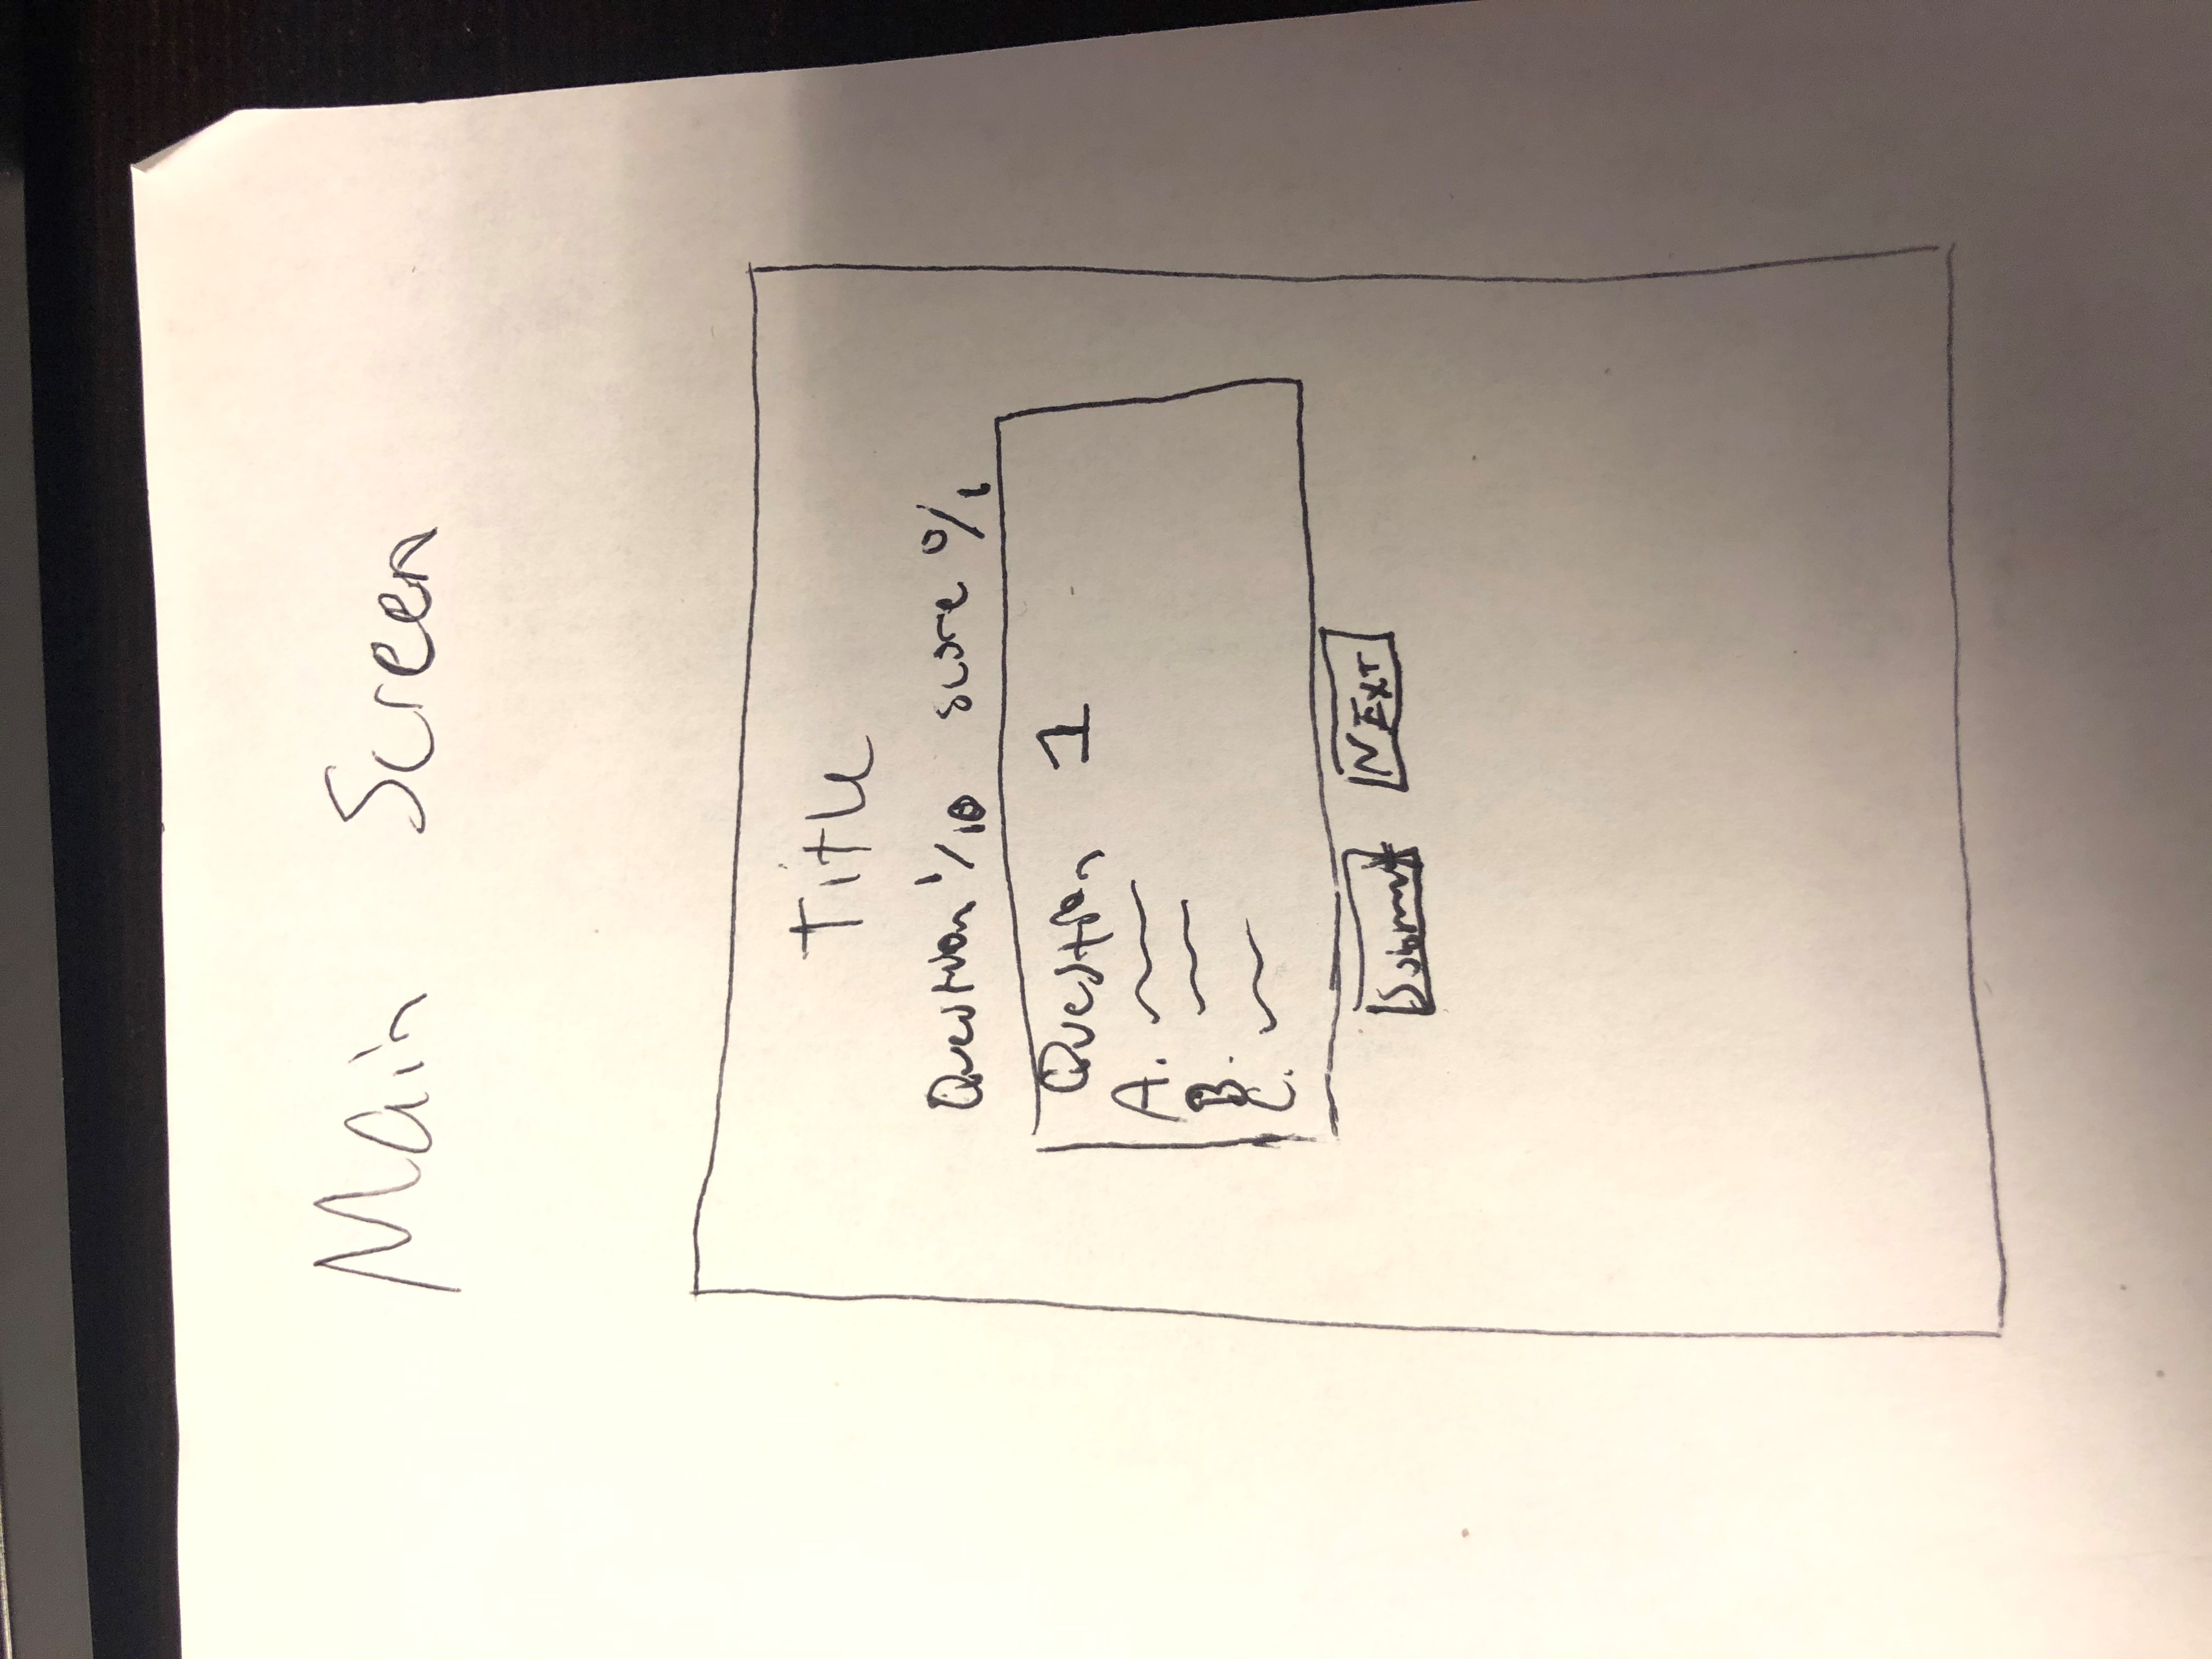 Main Screen
Title
Question 1/10 score %
Question 1
A.
B.
C.
Submit NEXT